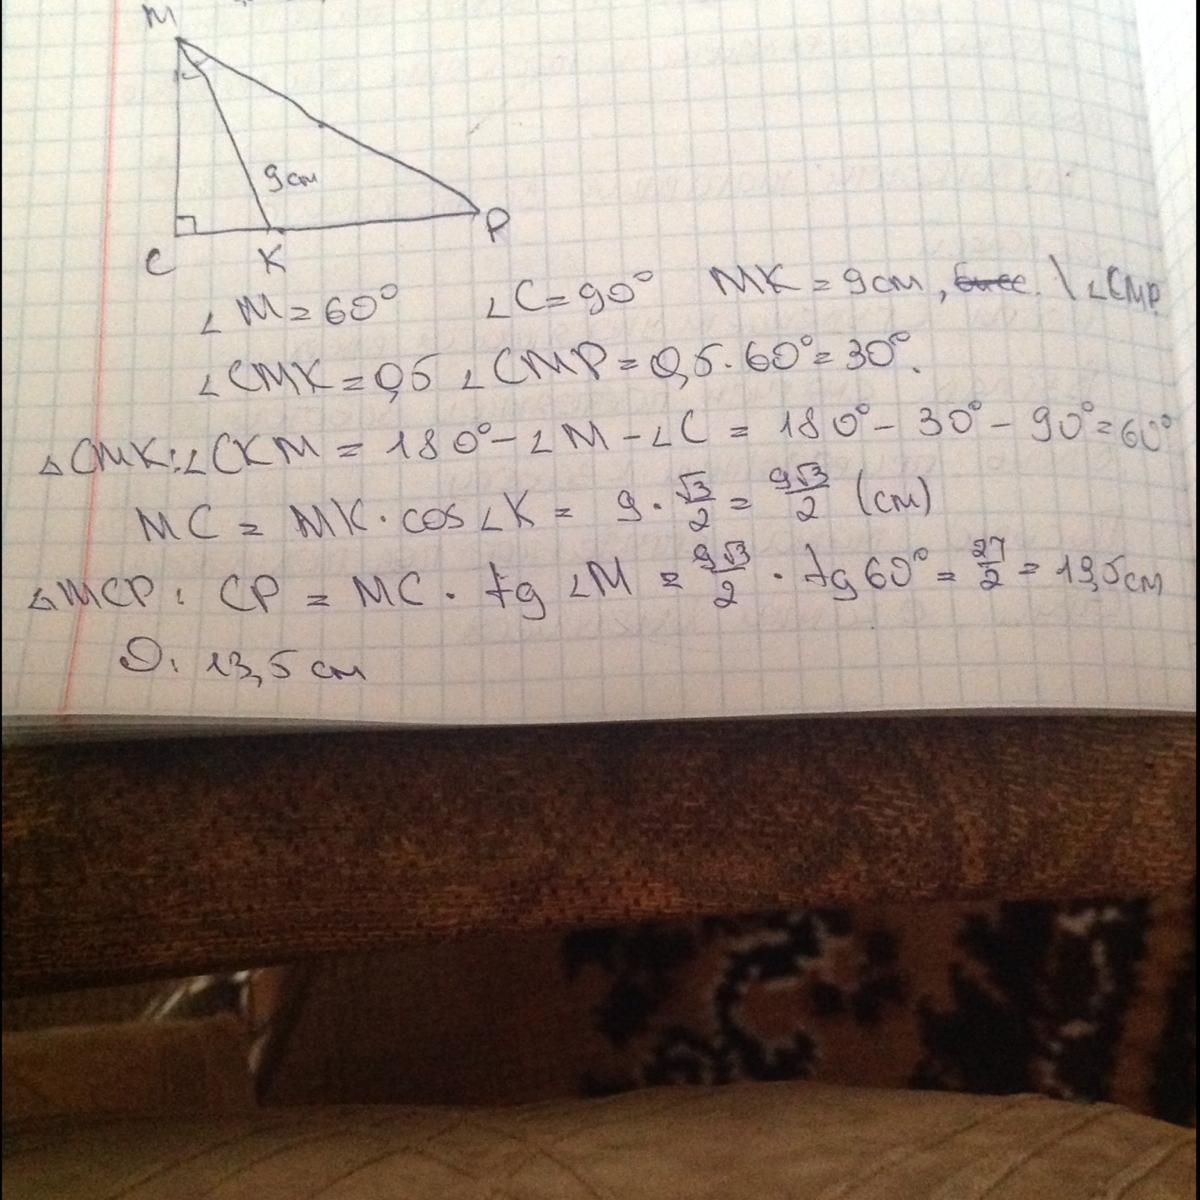 M
9 см
C K P
∠M = 60° ∠C = 90° MK = 9 см, \ ∠CMP
∠CMK = 0,5 ∠CMP = 0,5 · 60° = 30°.
△CMK: ∠CKM = 180° - ∠M - ∠C = 180° - 30° - 90° = 60°
MC = MK · cos ∠K = 9 · √3/2 = 9√3/2 (см)
△MCP: CP = MC · tg ∠M = 9√3/2 · tg 60° = 27/2 = 13,5 см
О: 13,5 см